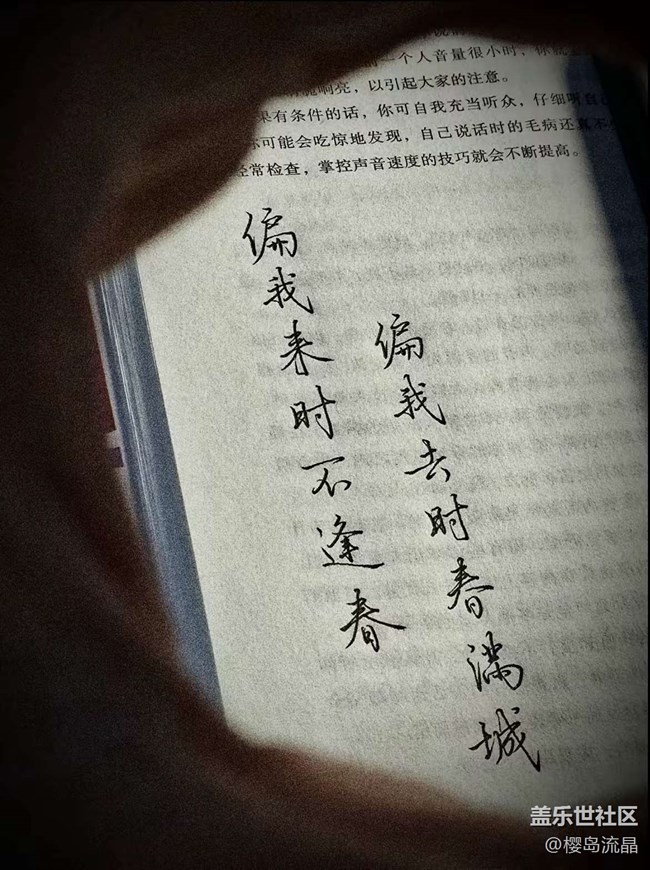 一个人音量很小时，你就
响亮，以引起大家的注意。
果有条件的话，你可自我充当听众，仔细听自
你可能会吃惊地发现，自己说话时的毛病还真不
经常检查，掌控声音速度的技巧就会不断提高。
偏我来时不逢春
偏我去时春满城
盖乐世社区
@樱岛流晶